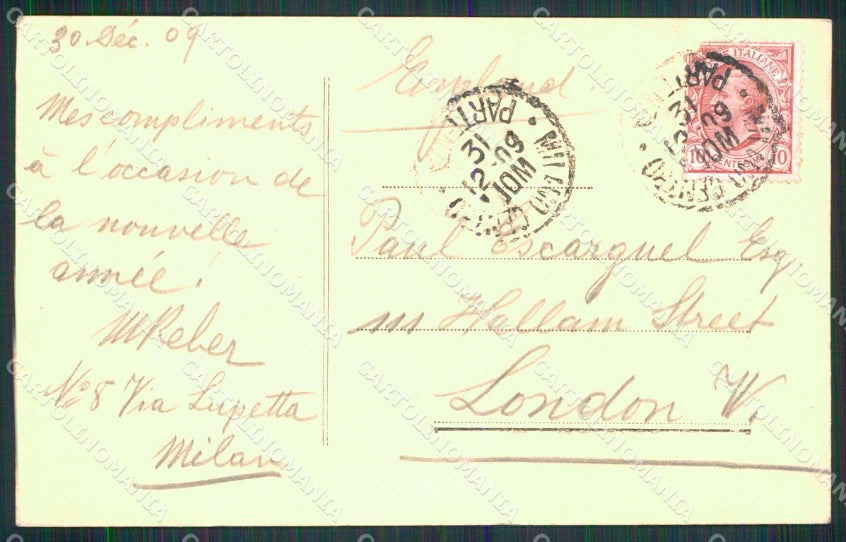 30. Déc. 09
Mes compliments
à l'occasion de
la nouvelle
année!
MReber
No 8 Via Lupetta
Milan
England
Paul Escarguel Esq
111 Hallam Street
London W.
MILANO CENTRO
PARTENZA
31
12
09
10M
MILANO CENTRO
PARTENZA
31
12
09
10M
ITALIANE
10
CENTESIMI
10
CARTOLINOMANIA